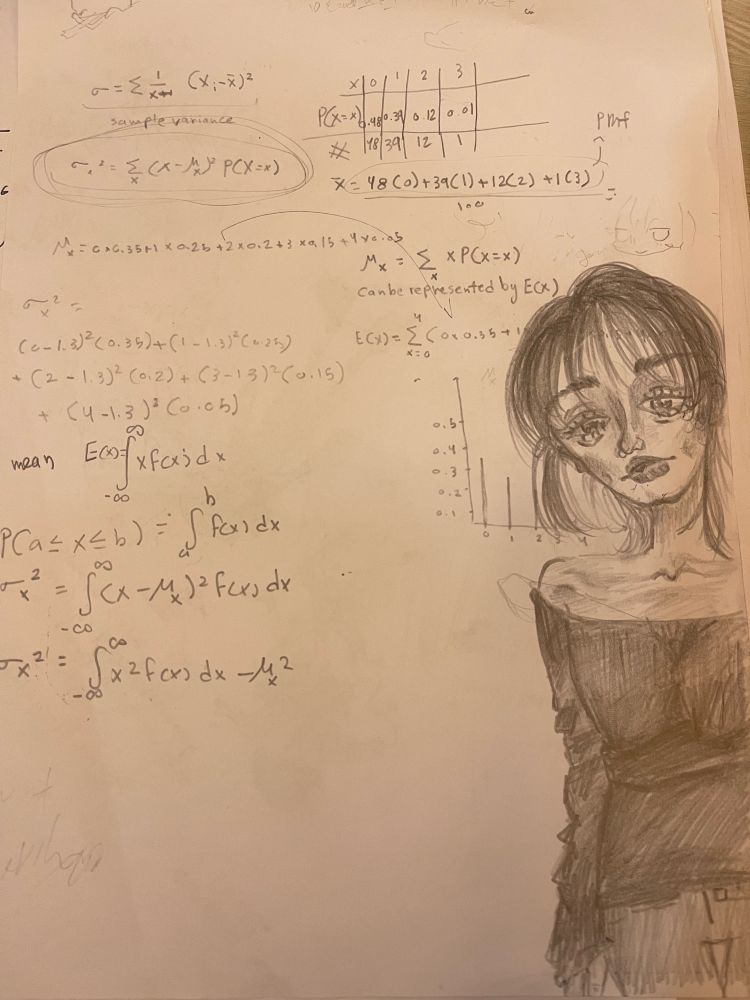 σ = Σ 1/x+1 (X_i - x̄)²
sample variance
σ_x² = Σ_x (x - μ_x)² P(X=x)
x | 0 | 1 | 2 | 3
P(X=x) | 0.48 | 0.39 | 0.12 | 0.01
# | 48 | 39 | 12 | 1
PMF
x̄ = 48(0)+39(1)+12(2)+1(3) / 100 =
μ_x = 0×0.35+1×0.25+2×0.2+3×0.15+4×0.05
μ_x = Σ_x x P(X=x)
can be represented by E(x)
σ_x² =
(0-1.3)²(0.35)+(1-1.3)²(0.25)
+ (2-1.3)²(0.2) + (3-1.3)²(0.15)
+ (4-1.3)²(0.05)
E(x) = Σ_{x=0}^{4} (0×0.35+1
0.5
0.4
0.3
0.2
0.1
0 1 2 3 4
mean E(x)=∫_{-∞}^{∞} x f(x) dx
P(a≤x≤b) = ∫_a^b f(x) dx
σ_x² = ∫_{-∞}^{∞} (x-μ_x)² f(x) dx
σ_x² = ∫_{-∞}^{∞} x² f(x) dx - μ_x²